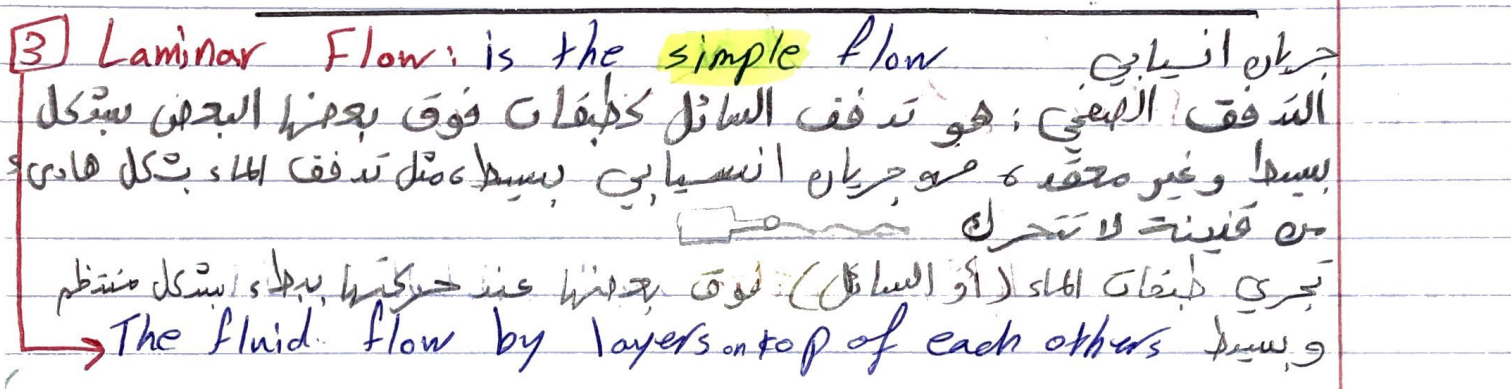 3 Laminar Flow: is the simple flow جريان انسيابي
التدفق الصفحي: هو تدفق السائل كطبقات فوق بعضها البعض بشكل
بسيط وغير معقد، فهو جريان انسيابي بسيط، مثل تدفق الماء بشكل هادئ
من قنينة لا تتحرك
تجري طبقات الماء (أو السائل) فوق بعضها عند حركتها ببطء بشكل منتظم
وبسيط The fluid flow by layers on top of each others